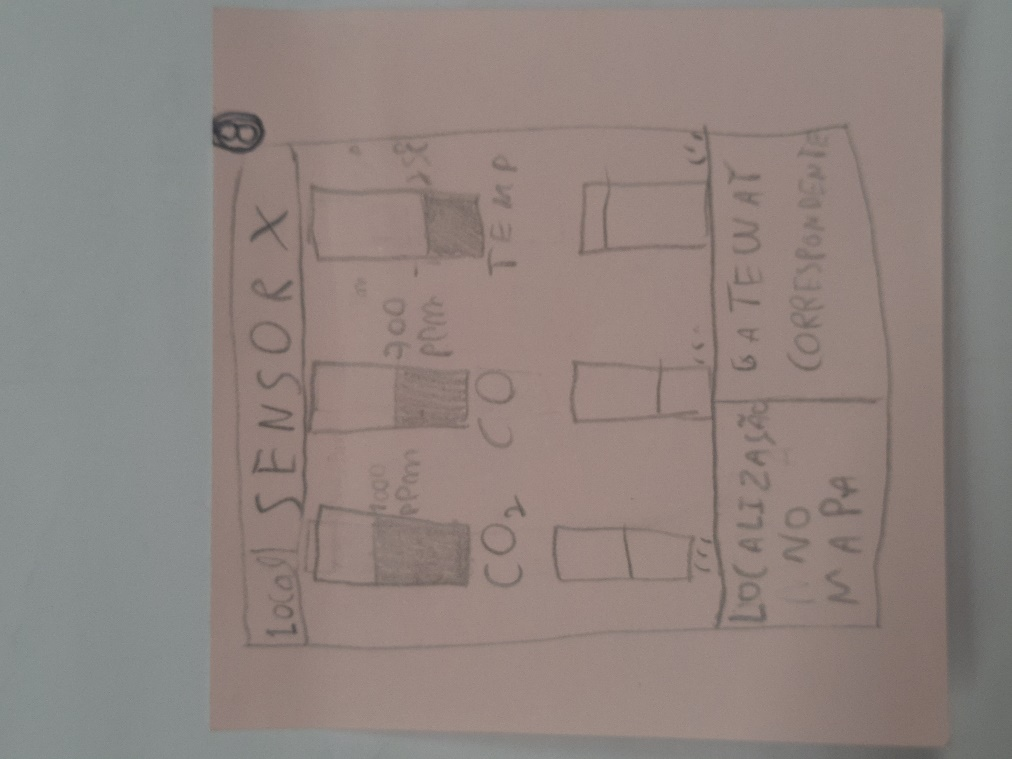 8
Local SENSOR X
1000 ppm
700 ppm
CO2
CO
TEMP
LOCALIZAÇÃO
NO
MAPA
GATEWAY
CORRESPONDENTE